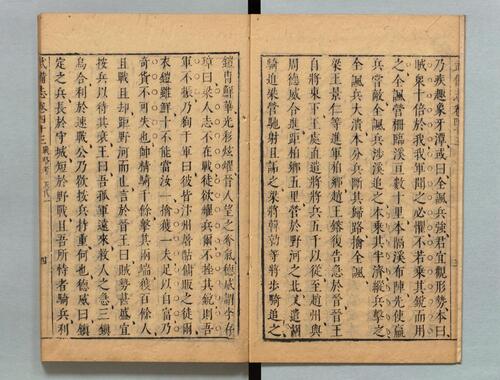 乃疾趨象牙潭或曰全諷兵強君宜觀形勢本曰
賊眾十倍於我我軍聞之必懼不若乘其銳而用
之全諷營柵臨溪亘數十里本隔溪布陣先使羸
兵嘗敵全諷兵涉溪追之本乘其半濟縱兵擊之
全諷兵大潰本分兵斷其歸路擒全諷
梁王景仁等進軍柏鄉趙王鎔復告急於晉晉王
自將東下王處直遣將將兵五千以從至趙州與
周德威合進距柏鄉五里營於野河之北又遣胡
騎迫梁營馳射且詬之梁將韓勍等將步騎追之
鎧冑鮮華光彩炫耀晉人望之奪氣德威謂李存
璋曰梁人志不在戰徒欲耀兵爾不挫其銳則吾
軍不振乃徇于軍曰彼皆汴州屠酤傭販之徒爾
衣鎧雖鮮十不能當汝一擒獲一夫足以自富乃
奇貨不可失也帥精騎千餘擊其兩端獲百餘人
且戰且却距野河而止言於晉王曰賊勢甚盛宜
按兵以待其衰王曰吾孤軍遠來救人之急三鎮
烏合利於速戰公乃欲按兵持重何也德威曰鎮
定之兵長於守城短於野戰且吾所恃者騎兵利
武備志卷四十 戰略考 五代 四